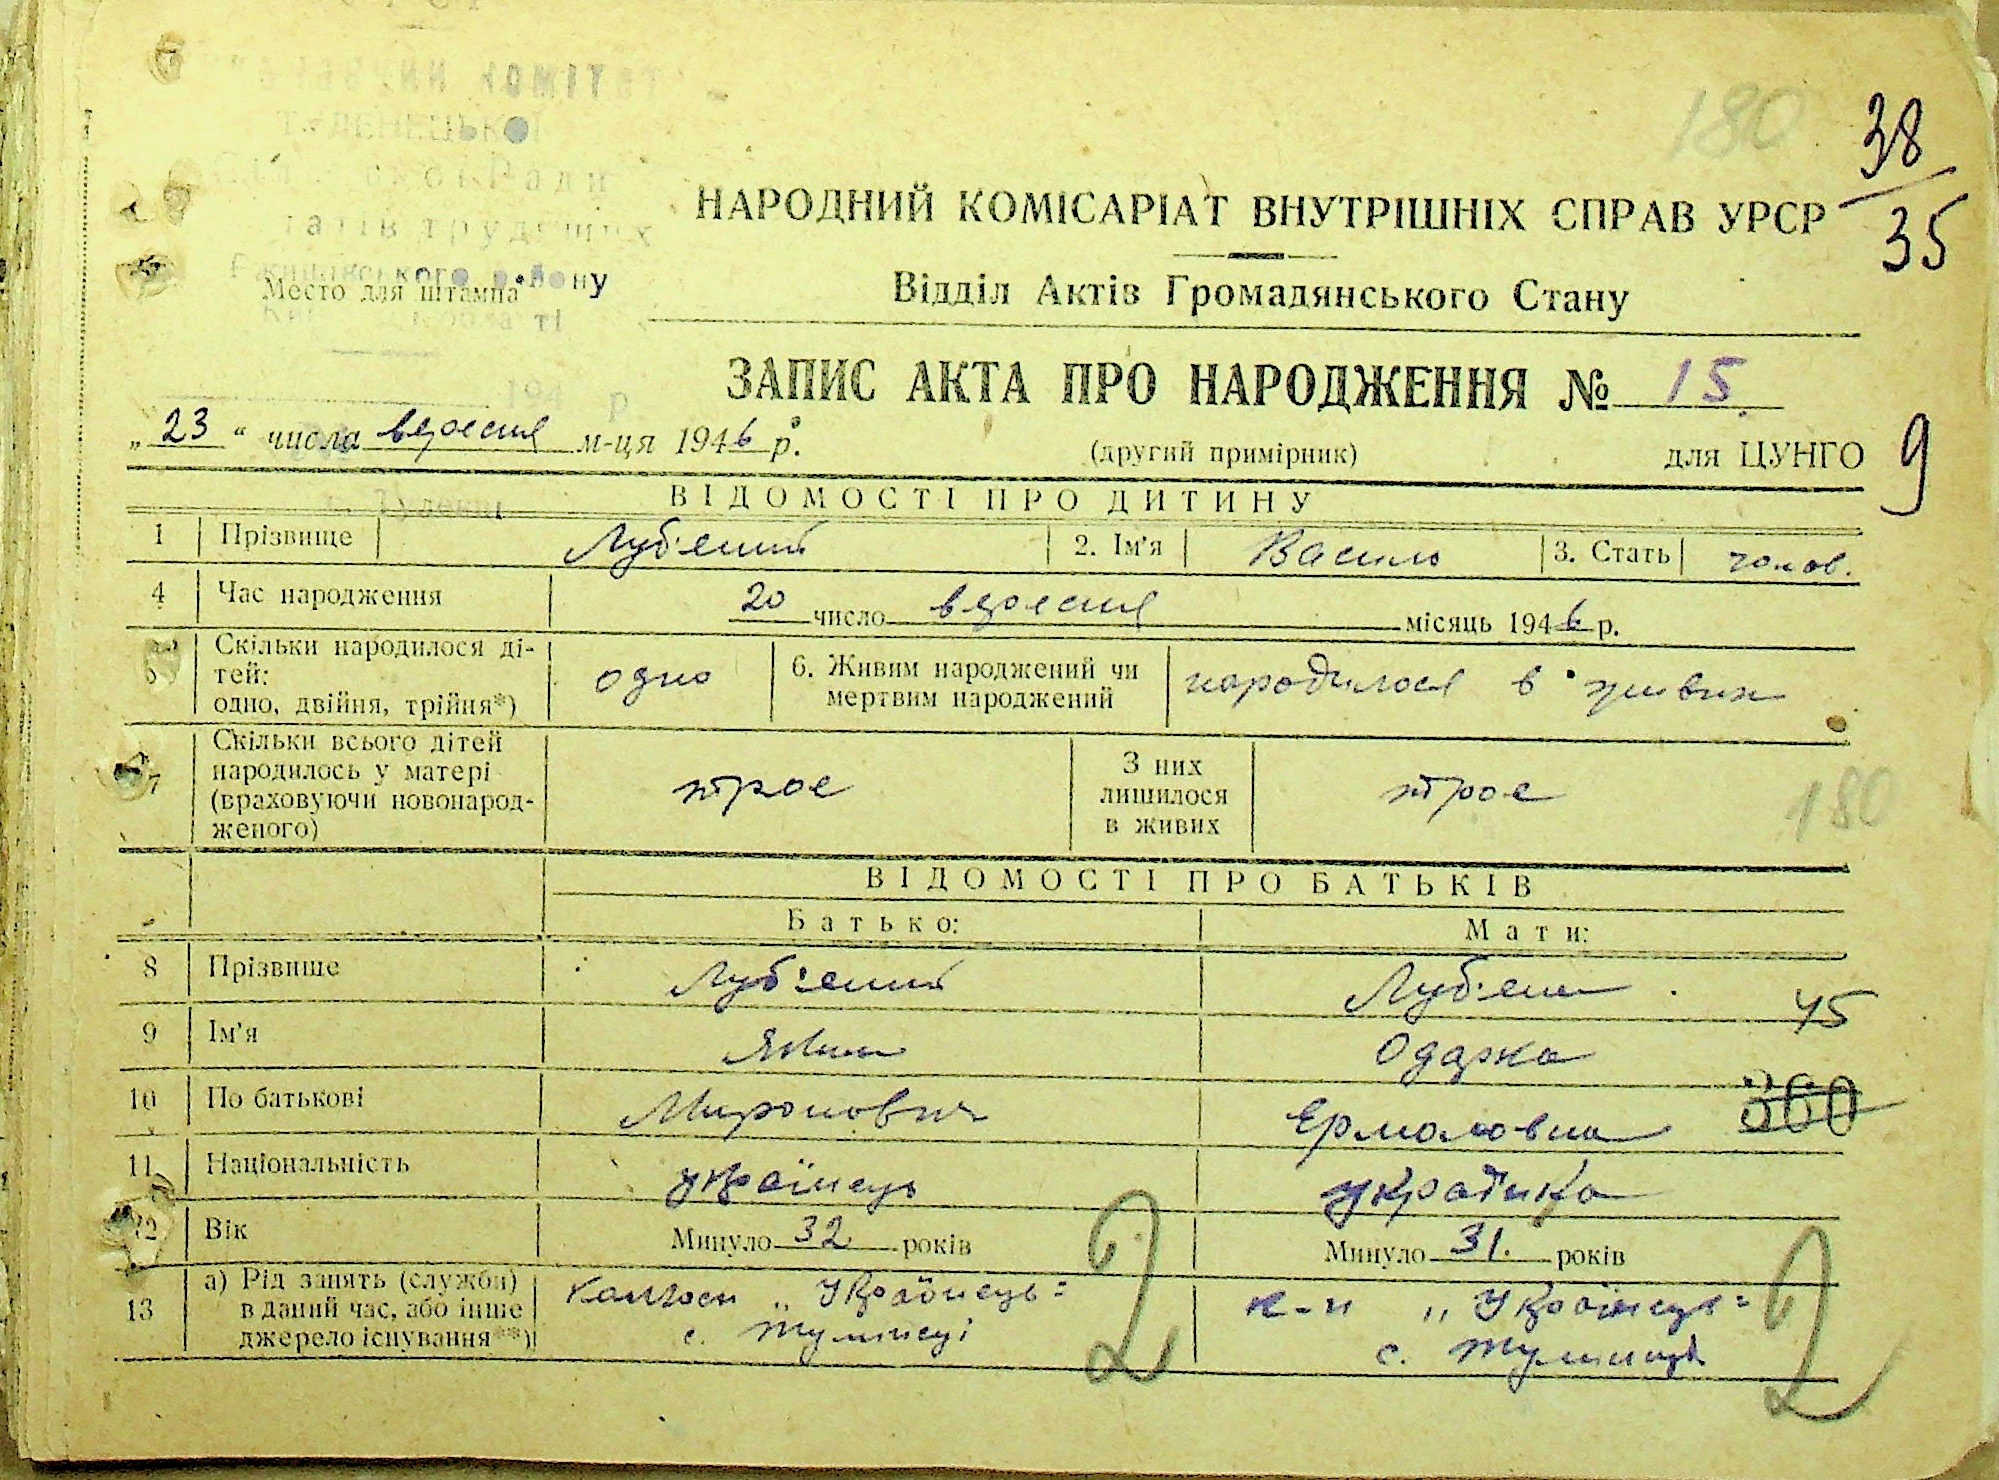 180
38
35
НАРОДНИЙ КОМІСАРІАТ ВНУТРІШНІХ СПРАВ УРСР
Відділ Актів Громадянського Стану
Место для штампа
ЗАПИС АКТА ПРО НАРОДЖЕННЯ № 15.
„23“ числа вересня м-ця 1946 р.
(другий примірник) для ЦУНГО
9
ВІДОМОСТІ ПРО ДИТИНУ
1 Прізвище Луб'яний 2. Ім'я Василь 3. Стать чолов.
4 Час народження 20 число вересня місяць 1946 р.
Скільки народилося ді-
тей:
одно, двійня, трійня*) одно 6. Живим народжений чи
мертвим народжений народилося в живих
7 Скільки всього дітей
народилось у матері
(враховуючи новонарод-
женого) трое З них
лишилося
в живих трое
180
ВІДОМОСТІ ПРО БАТЬКІВ
Батько: Мати:
8 Прізвище Луб'яний Луб'яна
45
9 Ім'я Яким Одарка
10 По батькові Миронович Ермоловна
360
11 Національність українець українка
12 Вік Минуло 32 років Минуло 31. років
13 а) Рід занять (служби)
в даний час, або інше
джерело існування**) колгосп „Українець"
с. Тулинці
к-п „Українець"
с. Тулинці
2 2